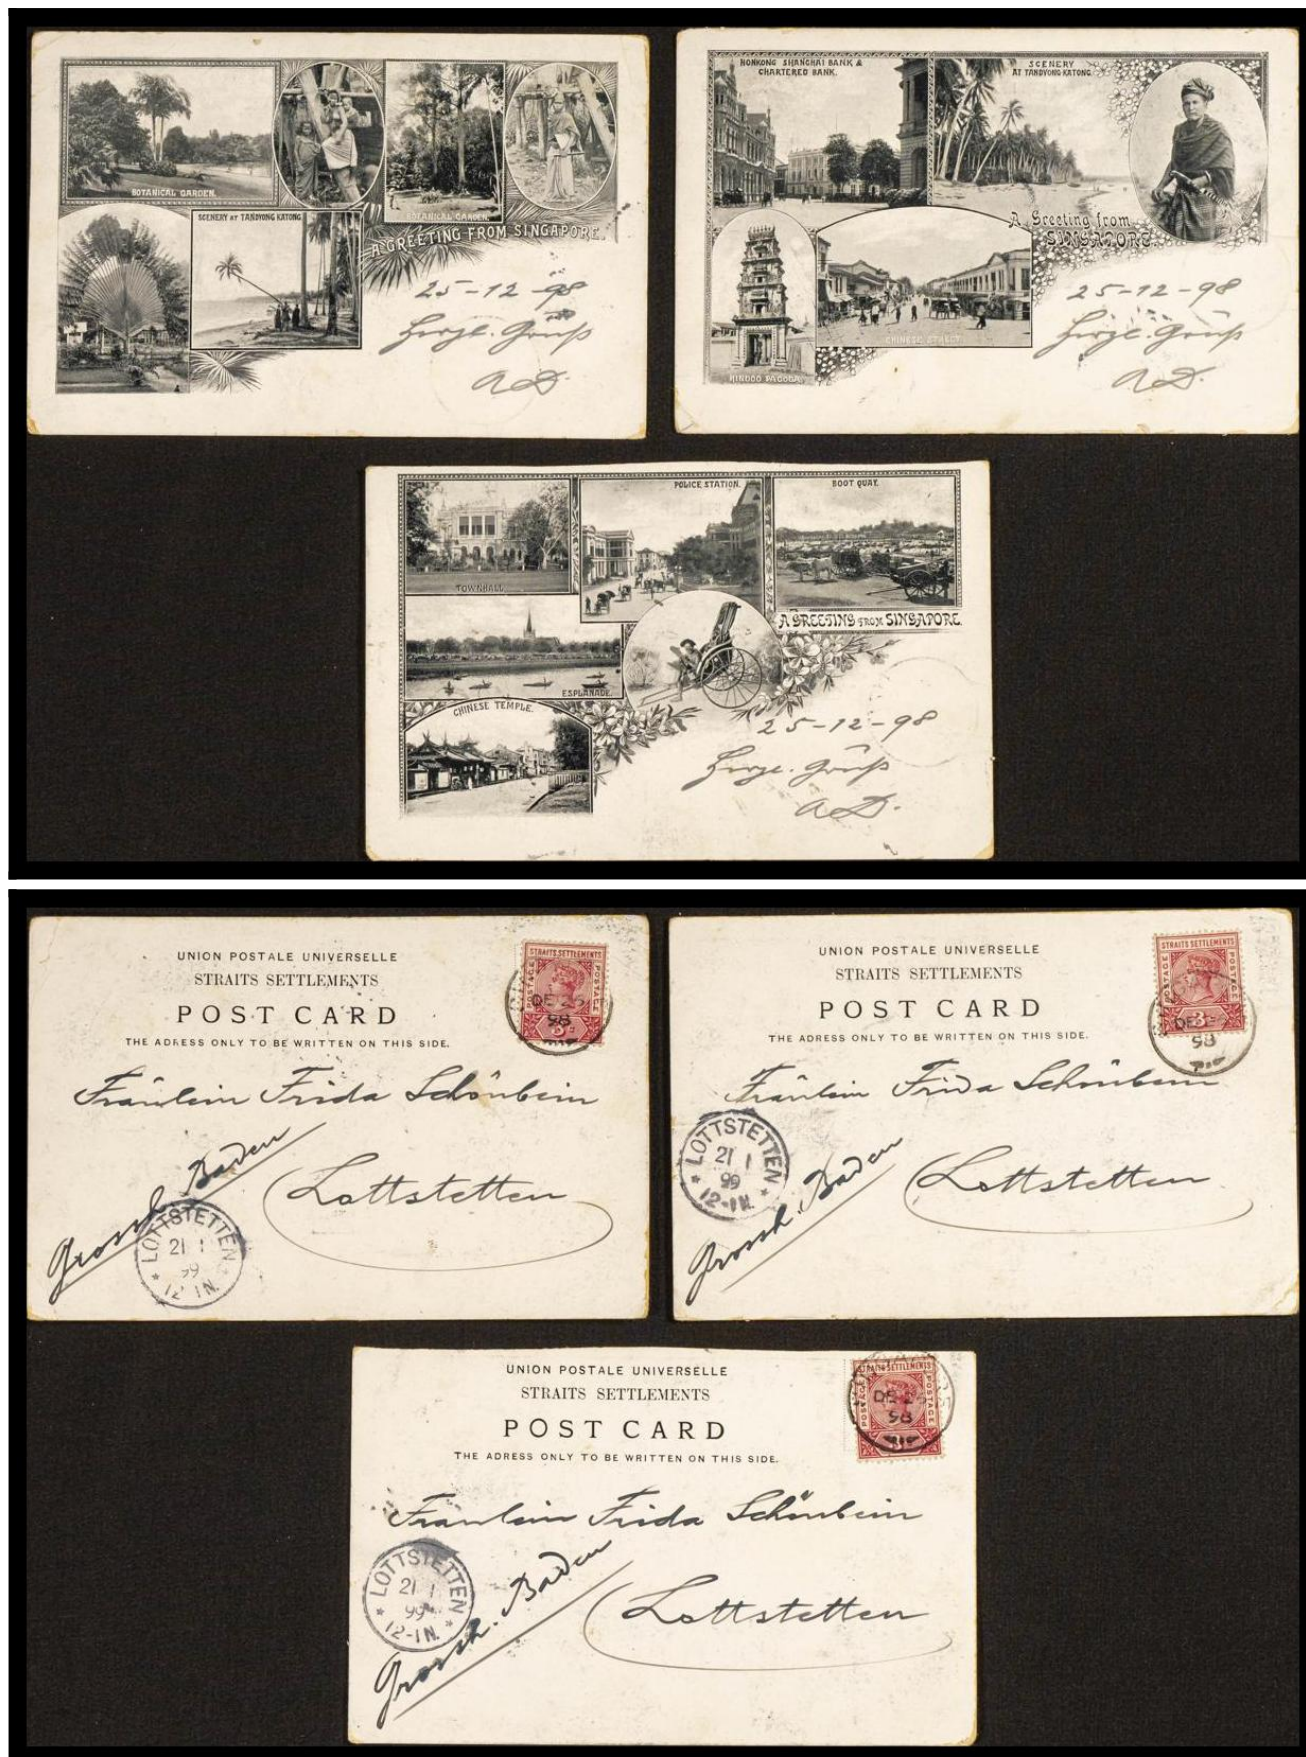 BOTANICAL GARDEN.
BOTANICAL GARDEN.
SCENERY AT TANDYONG KATONG
A GREETING FROM SINGAPORE.
25-12-98
Herzl. Grüß
A.D.
HONKONG SHANGHAI BANK &
CHARTERED BANK.
SCENERY
AT TANDYONG KATONG.
A Greeting from
SINGAPORE.
HINDOO PAGODA.
CHINESE STREET.
25-12-98
Herzl. Grüß
A.D.
TOWNHALL
POLICE STATION.
BOOT QUAY.
A GREETING FROM SINGAPORE.
ESPLANADE.
CHINESE TEMPLE.
25-12-98
Herzl. Grüß
A.D.
UNION POSTALE UNIVERSELLE
STRAITS SETTLEMENTS
POST CARD
THE ADRESS ONLY TO BE WRITTEN ON THIS SIDE.
STRAITS SETTLEMENTS
POSTAGE
POSTAGE
DE 25
98
Fräulein Frida Schönbein
Grossh. Baden
Lottstetten
LOTTSTETTEN
21 1
99
12-1N.
UNION POSTALE UNIVERSELLE
STRAITS SETTLEMENTS
POST CARD
THE ADRESS ONLY TO BE WRITTEN ON THIS SIDE.
STRAITS SETTLEMENTS
POSTAGE
POSTAGE
3
DE
98
Fräulein Frida Schönbein
Grossh. Baden
Lottstetten
LOTTSTETTEN
21 1
99
12-1N.
UNION POSTALE UNIVERSELLE
STRAITS SETTLEMENTS
POST CARD
THE ADRESS ONLY TO BE WRITTEN ON THIS SIDE.
STRAITS SETTLEMENTS
POSTAGE
POSTAGE
DE 25
98
Fräulein Frida Schönbein
Grossh. Baden
Lottstetten
LOTTSTETTEN
21 1
99
12-1N.